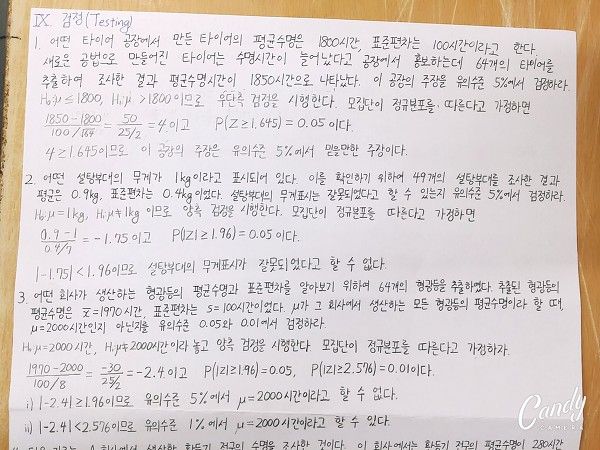 IX. 검정(Testing)
1. 어떤 타이어 공장에서 만든 타이어의 평균수명은 1800시간, 표준편차는 100시간이라고 한다.
새로운 공법으로 만들어진 타이어는 수명시간이 늘어났다고 공장에서 홍보하는데 64개의 타이어를
추출하여 조사한 결과 평균수명시간이 1850시간으로 나타났다. 이 공장의 주장을 유의수준 5%에서 검정하라.
H₀:μ≤1800, H₁:μ>1800이므로 우단측 검정을 시행한다. 모집단이 정규분포를 따른다고 가정하면
(1850-1800)/(100/√64) = 50/(25/2) = 4이고 P(Z≥1.645)=0.05이다.
4≥1.645이므로 이 공장의 주장은 유의수준 5%에서 믿을만한 주장이다.
2. 어떤 설탕부대의 무게가 1kg이라고 표시되어 있다. 이를 확인하기 위하여 49개의 설탕부대를 조사한 결과
평균은 0.9kg, 표준편차는 0.4kg이었다. 설탕부대의 무게표시는 잘못되었다고 할 수 있는지 유의수준 5%에서 검정하라.
H₀:μ=1kg, H₁:μ≠1kg이므로 양측 검정을 시행한다. 모집단이 정규분포를 따른다고 가정하면
(0.9-1)/(0.4/7) = -1.75이고 P(|Z|≥1.96)=0.05이다.
|-1.75|<1.96이므로 설탕부대의 무게표시가 잘못되었다고 할 수 없다.
3. 어떤 회사가 생산하는 형광등의 평균수명과 표준편차를 알아보기 위하여 64개의 형광등을 추출하였다. 추출된 형광등의
평균수명은 x̄=1970시간, 표준편차는 s=100시간이었다. μ가 그 회사에서 생산하는 모든 형광등의 평균수명이라 할 때,
μ=2000시간인지 아닌지를 유의수준 0.05와 0.01에서 검정하라.
H₀:μ=2000시간, H₁:μ≠2000시간이라 놓고 양측 검정을 시행한다. 모집단이 정규분포를 따른다고 가정하자.
(1970-2000)/(100/8) = -30/(25/2) = -2.4이고 P(|Z|≥1.96)=0.05, P(|Z|≥2.576)=0.01이다.
i) |-2.4|≥1.96이므로 유의수준 5%에서 μ=2000시간이라고 할 수 없다.
ii) |-2.4|<2.576이므로 유의수준 1%에서 μ=2000시간이라고 할 수 있다.
A 회사에서 생산한 조사한 것이다. 이 회사에서는 전구의 평균수명이 280시간
Candy
CAMERA